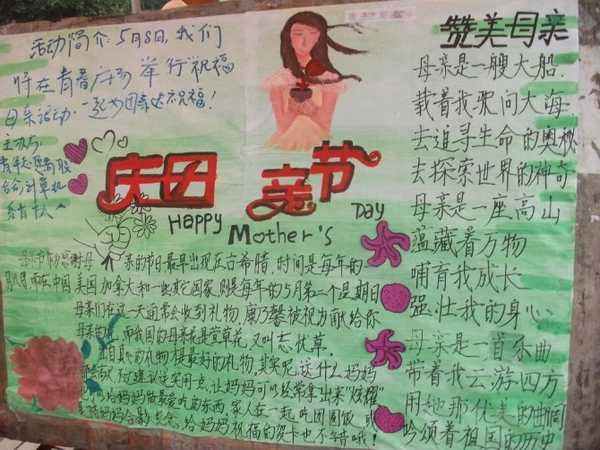 活动简介:5月8日,我们
将在青春广场举行祝福
母亲活动.一起为母亲送祝福!
主办方:
赞美母亲
母亲是一艘大船.
载着我驶向大海
去追寻生命的奥秘
去探索世界的神奇
母亲是一座高山
蕴藏着万物
哺育我成长
强壮我的身心.
母亲是一首乐曲
带着我云游四方
用她那优美的曲调
吟颂着祖国的历史
庆母亲节
Happy Mother's Day
亲的节日最早出现在古希腊,时间是每年的一
月8日,而在中国、美国、加拿大和一些其它国家,则是每年的5月第二个星期日
母亲们在这一天通常会收到礼物,康乃馨被视为献给你
母亲的花,而我国的母亲花是萱草花,又叫忘忧草.
出自真心的礼物,是最好的礼物,其实呢,送什么妈妈
不过建议送实用点,让妈妈可以经常拿出来"炫耀"
给妈妈做最爱吃的东西,家人在一起吃团圆饭,或
妈妈合影留念,给妈妈祝福的贺卡也不错哦!